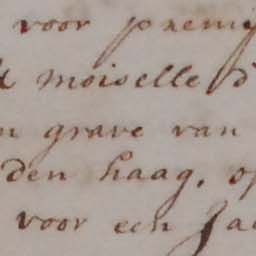 voor premi
moiselle d
grave van
den haag, op
voor een Ja